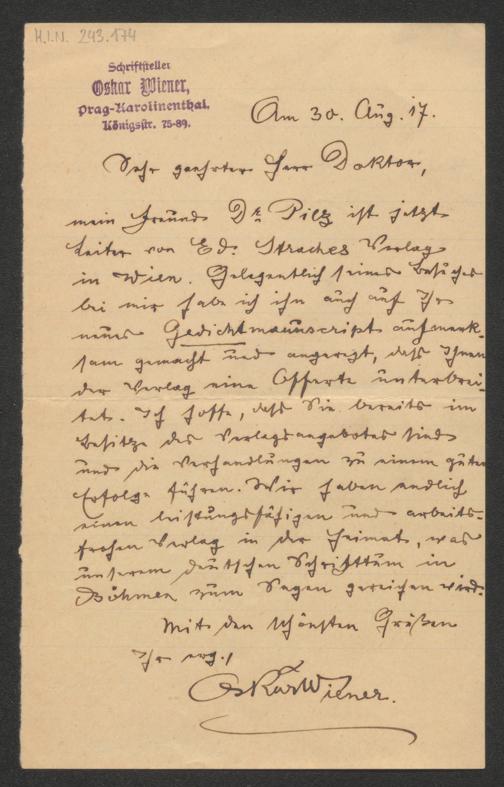 H.I.N. 243.174
Schriftsteller
Oskar Wiener,
Prag-Karolinenthal.
Königstr. 75-89.
Am 30. Aug. 17.
Sehr geehrter Herr Doktor,
mein Freund Dr. Pilz ist jetzt
Leiter von Ed. Straches Verlag
in Wien. Gelegentlich seines Besuches
bei mir habe ich ihn auch auf Ihr
neues Gedichtmanuscript aufmerk-
sam gemacht und angeregt, daß Ihnen
der Verlag eine Offerte unterbrei-
tet. Ich hoffe, daß Sie bereits im
Besitze des Verlagsangebotes sind
und die Verhandlungen zu einem guten
Erfolge führen. Wir haben endlich
einen leistungsfähigen und arbeits-
frohen Verlag in der Heimat, was
unserem deutschen Schrifttum in
Böhmen zum Segen gereichen wird.
Mit den schönsten Grüßen
Ihr erg.
Oskar Wiener.